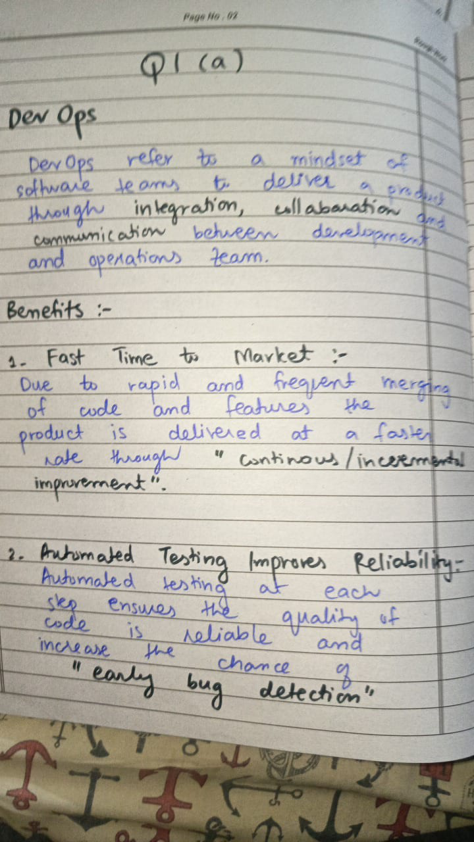 Page No. 02
Q1 (a)
Dev Ops
DevOps refer to a mindset of
software teams to deliver a product
through integration, collabaration and
communication between development
and operations team.
Benefits :-
1. Fast Time to Market :-
Due to rapid and frequent merging
of code and features the
product is delivered at a faster
rate through " continous/incremental
improvement".
2. Automated Testing Improves Reliability:-
Automated testing at each
step ensures the quality of
code is reliable and
increase the chance of
" early bug detection"